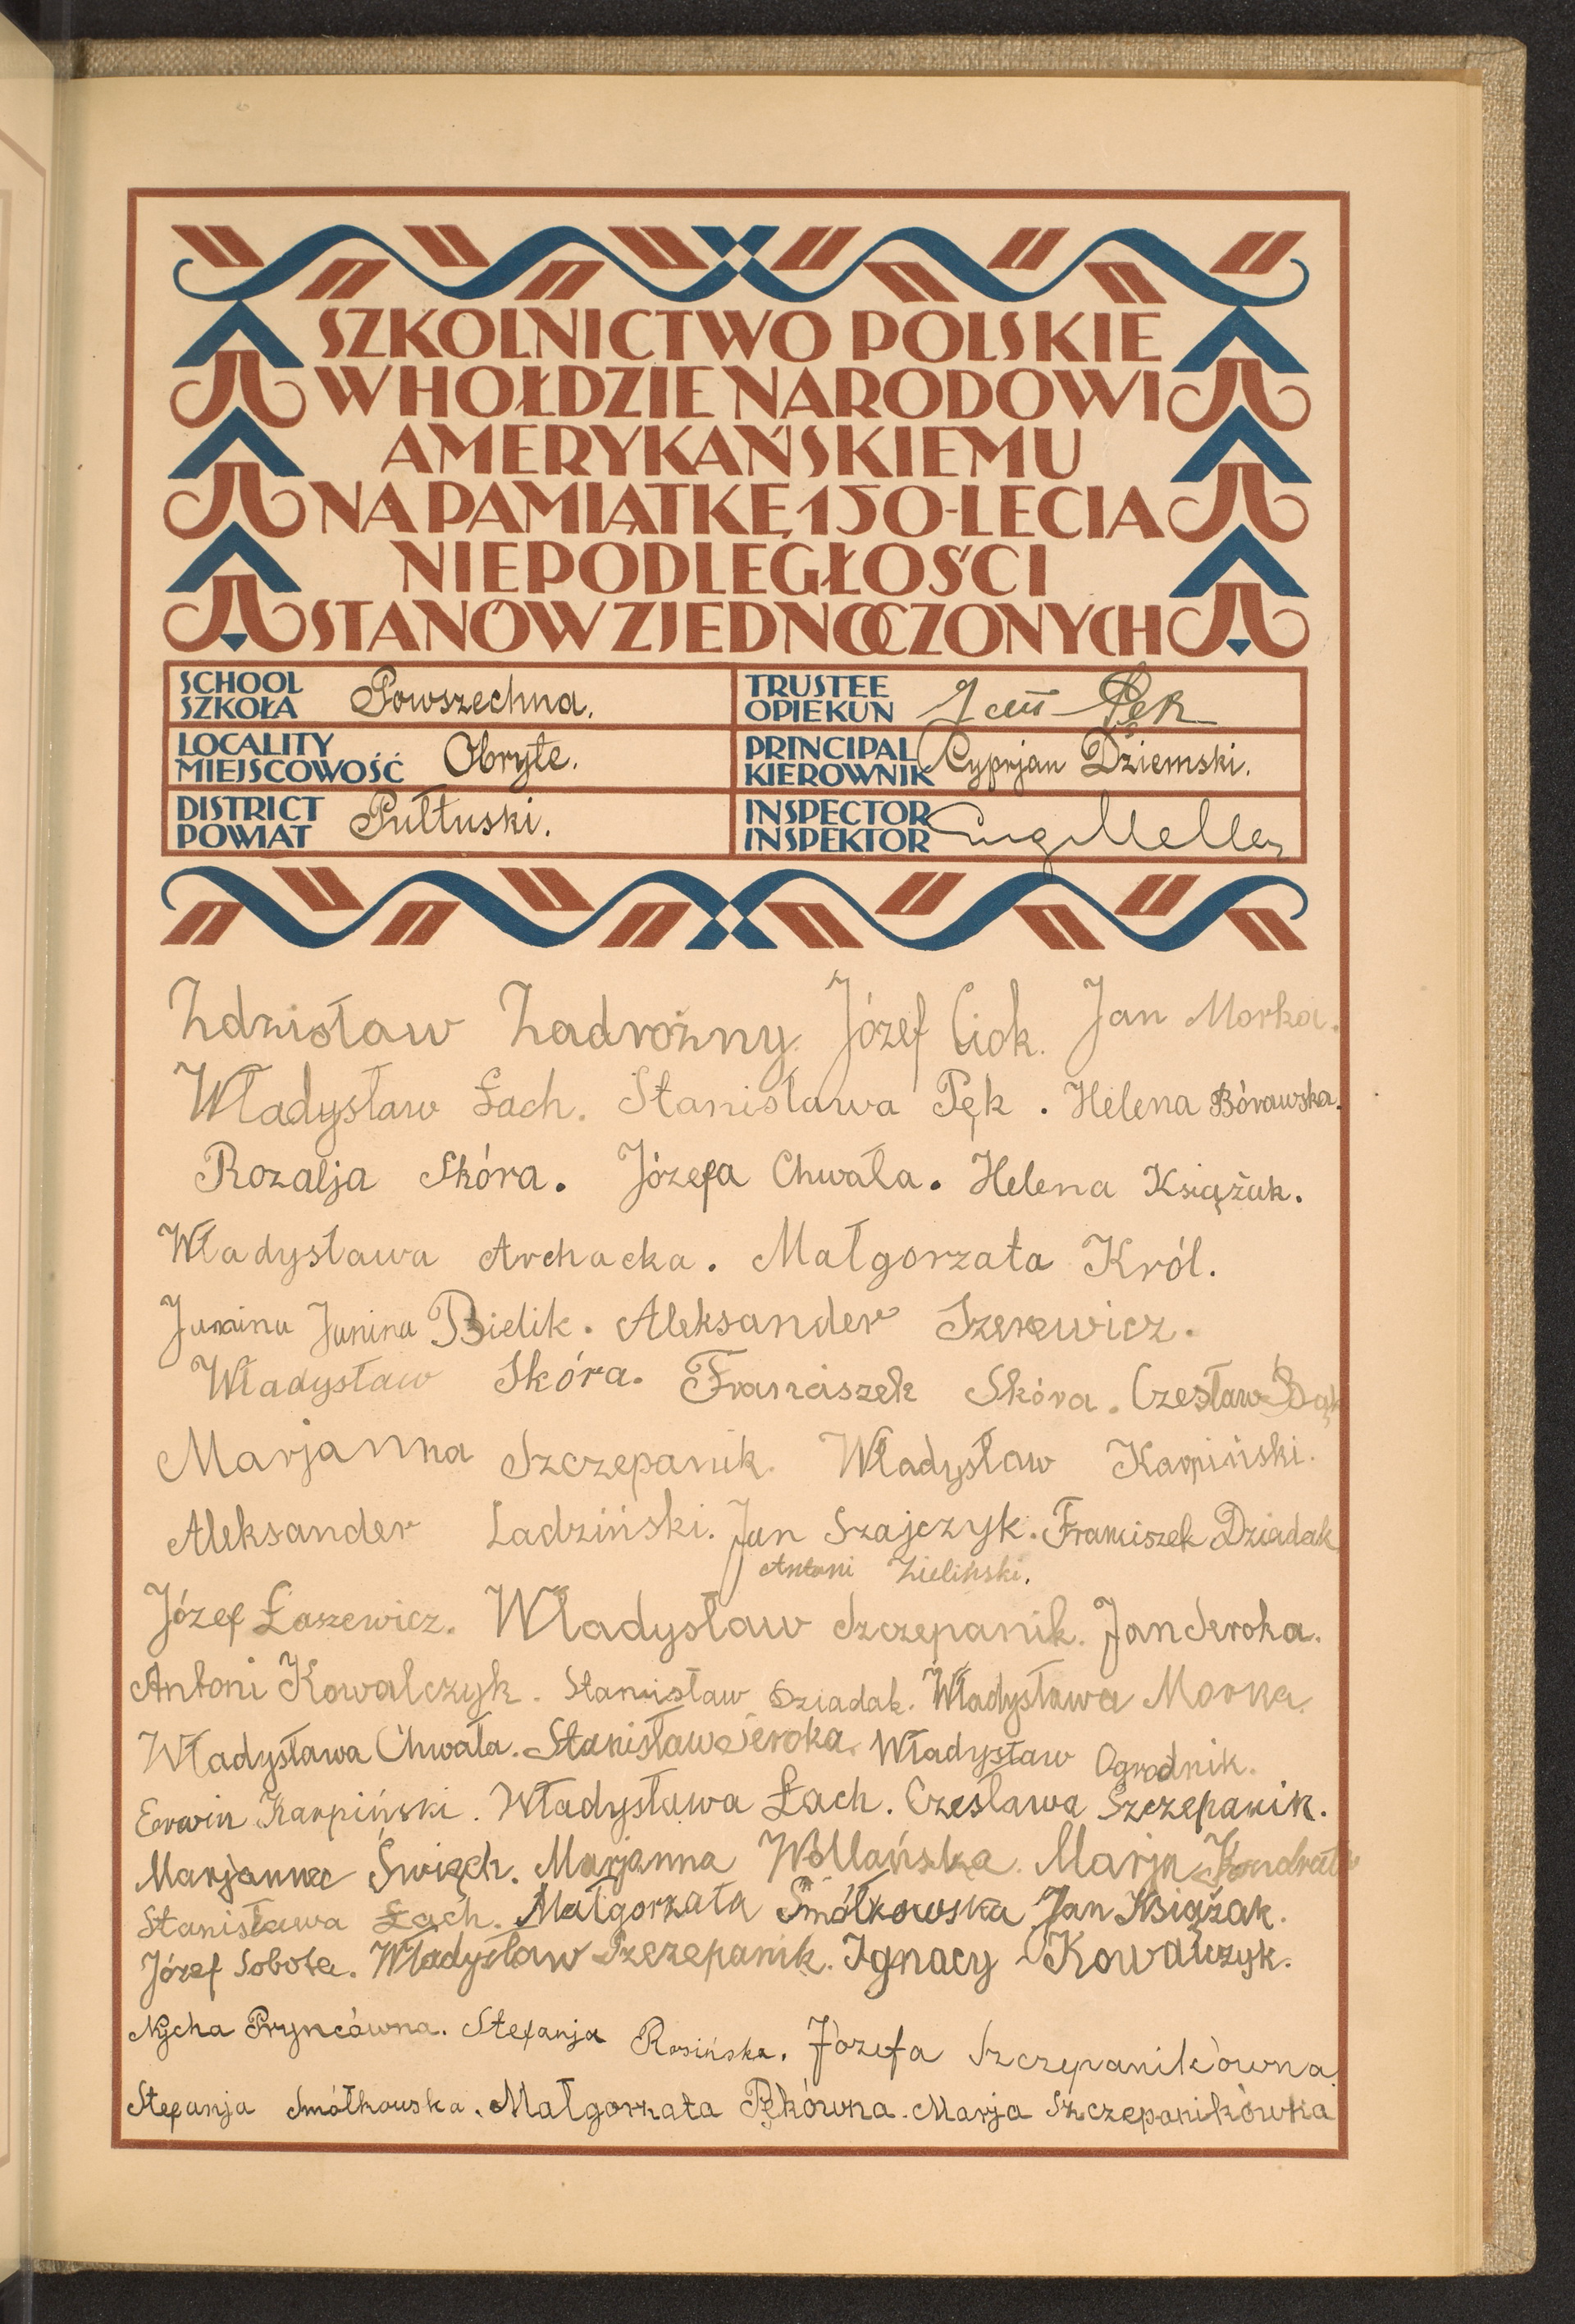 SZKOLNICTWO POLSKIE
W HOŁDZIE NARODOWI
AMERYKAŃSKIEMU
NA PAMIĄTKĘ 150-LECIA
NIEPODLEGŁOŚCI
STANÓW ZJEDNOCZONYCH
SCHOOL
SZKOŁA Powszechna.
TRUSTEE
OPIEKUN Jan Pęk
LOCALITY
MIEJSCOWOŚĆ Obryte.
PRINCIPAL
KIEROWNIK Cyprjan Dziemski.
DISTRICT
POWIAT Pułtuski.
INSPECTOR
INSPEKTOR
Zdzisław Zadrożny. Józef Ciok. Jan Morka.
Władysław Łach. Stanisława Pęk. Helena Bórawska.
Rozalja Skóra. Józefa Chwała. Helena Książak.
Władysława Archacka. Małgorzata Król.
Janina Janina Bielik. Aleksander Szerewicz.
Władysław Skóra. Franciszek Skóra. Czesław Bąk
Marjanna Szczepanik. Władysław Karpiński.
Aleksander Ladziński. Jan Szajczyk. Franciszek Dziadak
Antoni Zieliński.
Józef Łaszewicz. Władysław Szczepanik. Jan Seroka.
Antoni Kowalczyk. Stanisław Dziadak. Władysława Morka.
Władysława Chwała. Stanisław Seroka. Władysław Ogrodnik.
Erwin Karpiński. Władysława Łach. Czesława Szczepanik.
Marjanna Święch. Marjanna Marja
Stanisława Łach. Małgorzata Smółkowska Jan Książak.
Józef Sobota. Władysław Szczepanik. Ignacy Kowalczyk.
Pryncówna. Stefanja Rosińska. Józefa Szczepanikówna
Stefanja Smółkowska. Małgorzata Pękówna. Marja Szczepanikówna